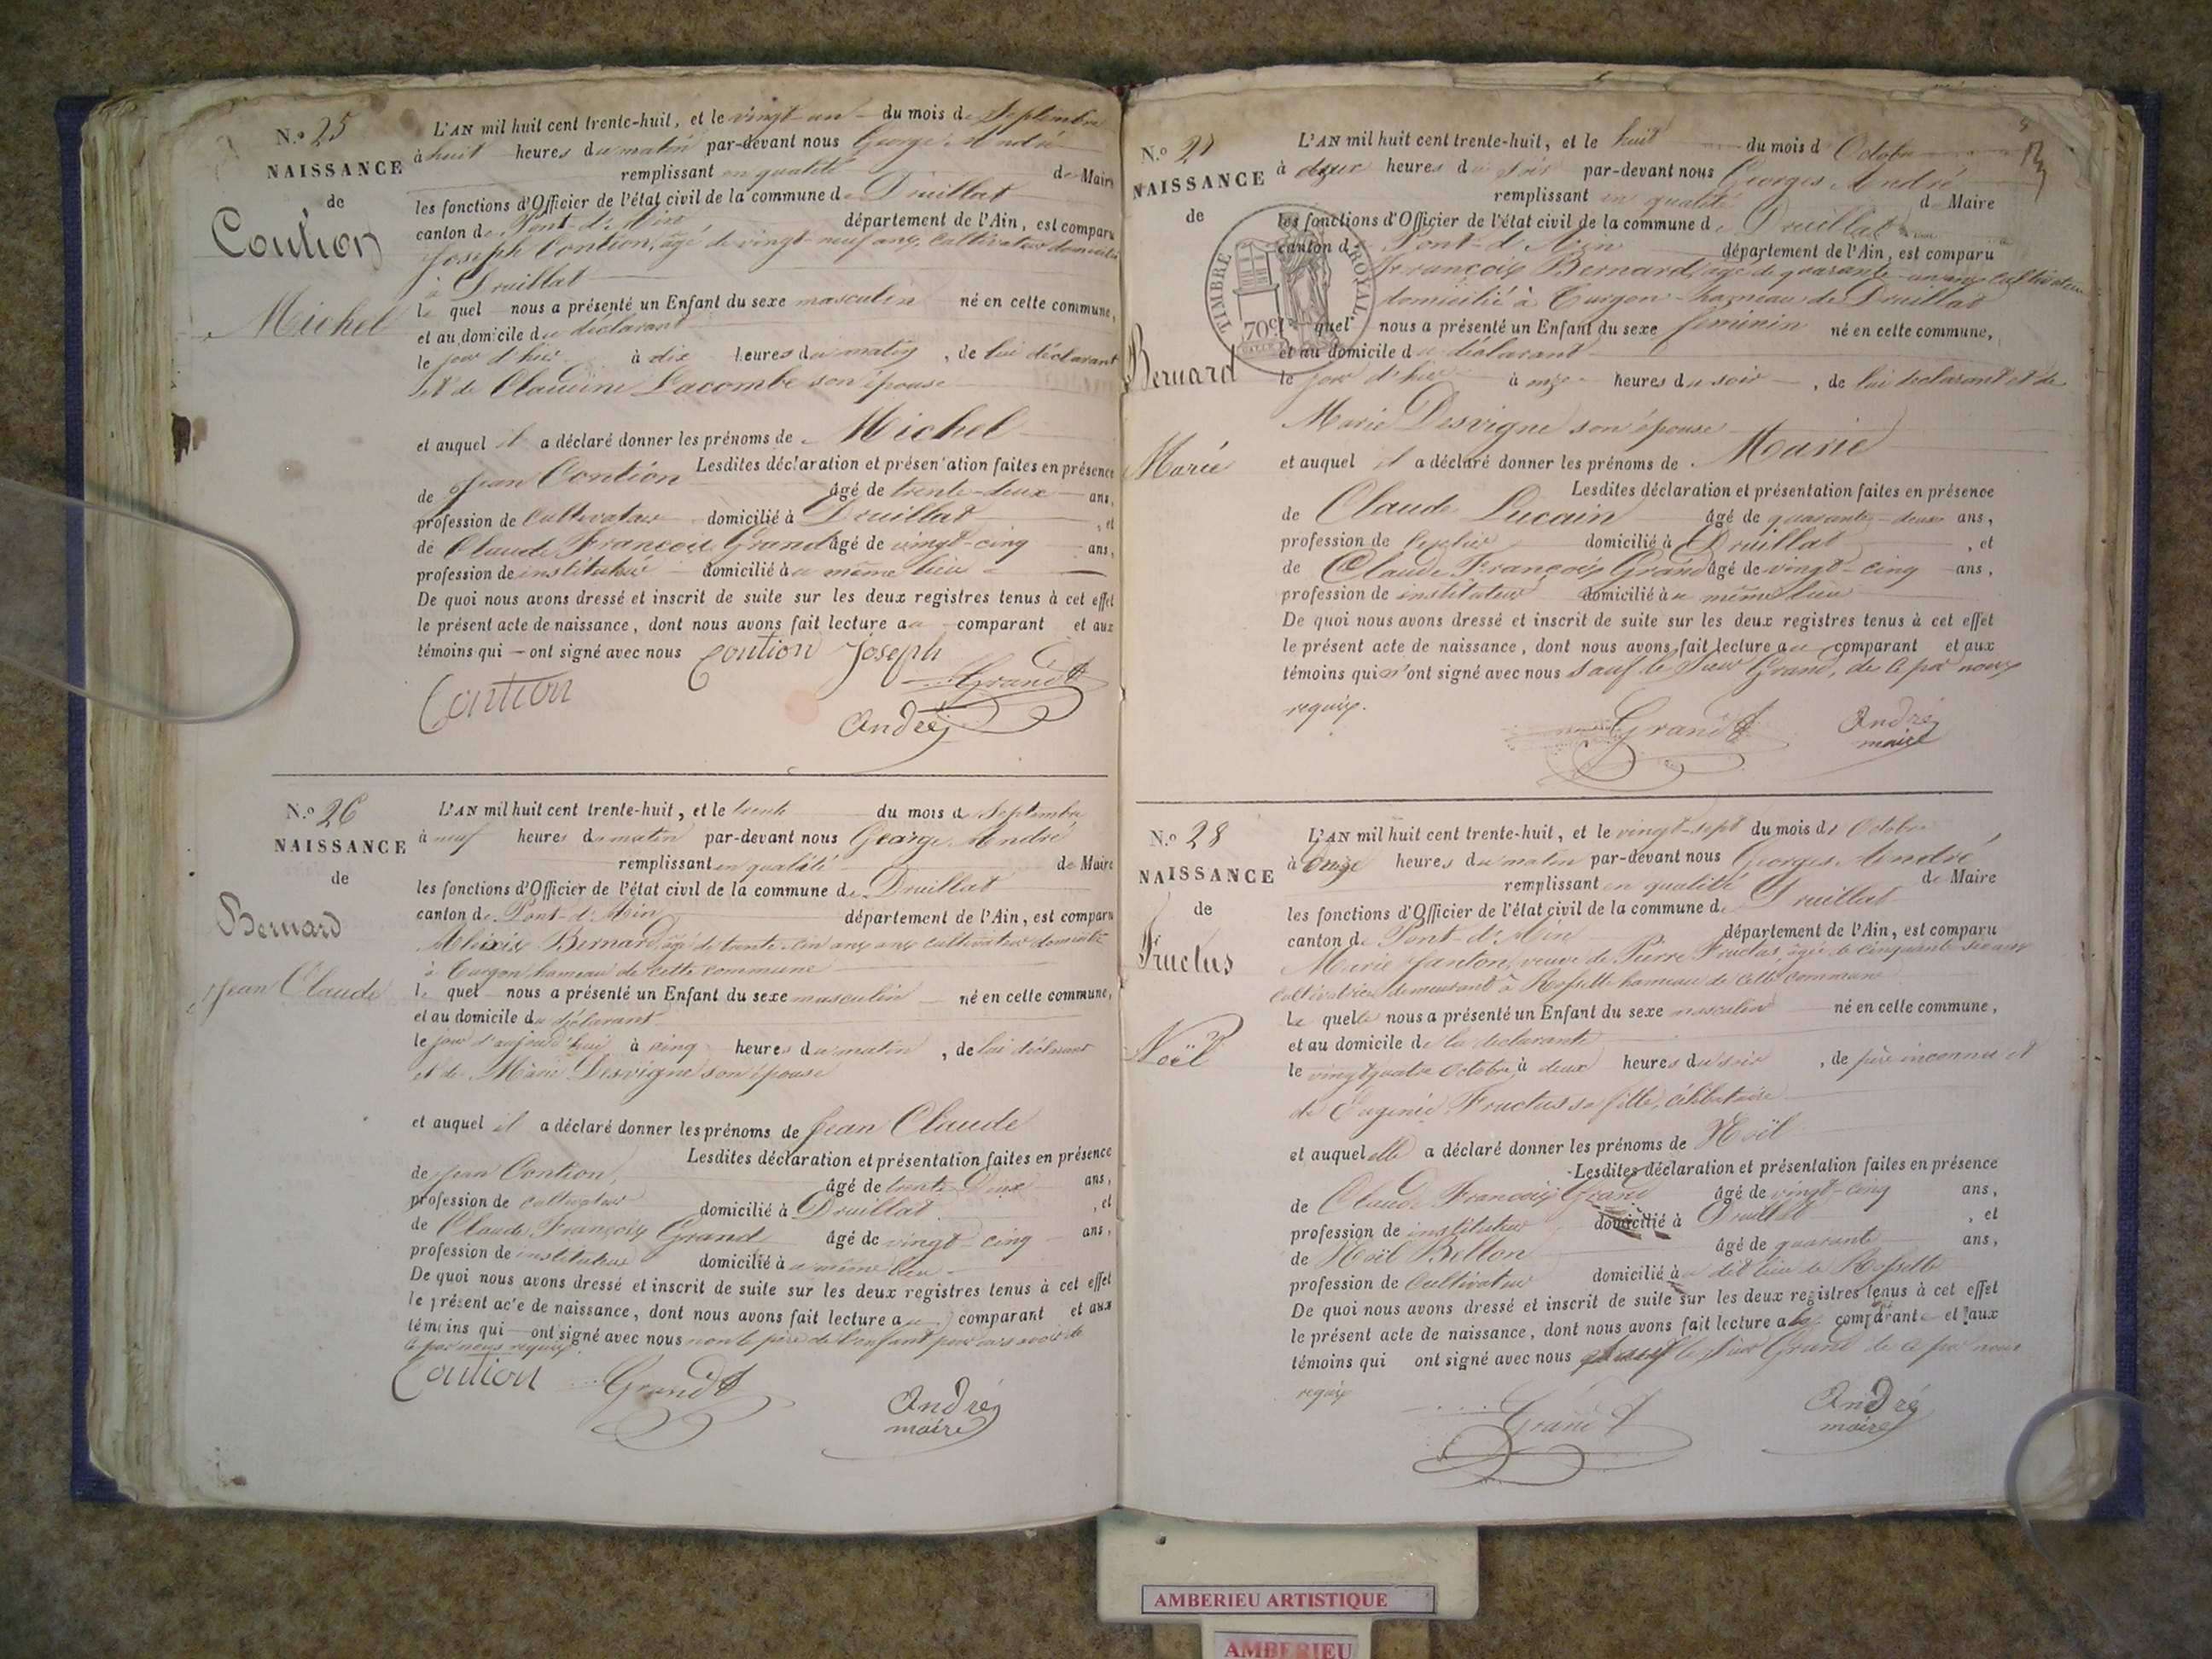 N.º 25
NAISSANCE
de
Coution
Michel
L'AN mil huit cent trente-huit, et le vingt-un du mois de Septembre
à huit heures du matin par-devant nous George André
remplissant en qualité de Maire
les fonctions d'Officier de l'état civil de la commune de Druillat
canton de Pont-d'Ain département de l'Ain, est comparu
Joseph Contion, âgé de vingt-neuf ans, Cultivateur domicilié
à Druillat
le quel nous a présenté un Enfant du sexe masculin né en cette commune,
et au domicile du déclarant
le jour d'hier à dix heures du matin, de lui déclarant
et de Claudine Lacombe son épouse
et auquel il a déclaré donner les prénoms de Michel
Lesdites déclaration et présentation faites en présence
de Jean Contion âgé de trente-deux ans,
profession de Cultivateur domicilié à Druillat, et
de Claude François Grand âgé de vingt-cinq ans,
profession de instituteur domicilié au même lieu
De quoi nous avons dressé et inscrit de suite sur les deux registres tenus à cet effet
le présent acte de naissance, dont nous avons fait lecture au comparant et aux
témoins qui ont signé avec nous Coution Joseph
Coution Grand
André
N.º 26
NAISSANCE
de
Bernard
Jean Claude
L'AN mil huit cent trente-huit, et le trente du mois de Septembre
à neuf heures du matin par-devant nous George André
remplissant en qualité de Maire
les fonctions d'Officier de l'état civil de la commune de Druillat
canton de Pont-d'Ain département de l'Ain, est comparu
Alexis Bernard, âgé de trente ans cultivateur domicilié
à Turgon hameau de cette commune
le quel nous a présenté un Enfant du sexe masculin né en cette commune,
et au domicile du déclarant
le jour d'aujourd'hui à cinq heures du matin, de lui déclarant
et de Marie Desvigne son épouse
et auquel il a déclaré donner les prénoms de Jean Claude
Lesdites déclaration et présentation faites en présence
de Jean Contion, âgé de trente deux ans,
profession de cultivateur domicilié à Druillat, et
de Claude François Grand âgé de vingt-cinq ans,
profession de instituteur domicilié au même lieu
De quoi nous avons dressé et inscrit de suite sur les deux registres tenus à cet effet
le présent acte de naissance, dont nous avons fait lecture au comparant et aux
témoins qui ont signé avec nous non le père de l'enfant pour
ce par nous requis
Coution Grand André
maire
N.º 27
NAISSANCE
de
Bernard
Marie
TIMBRE ROYAL
70c
L'AN mil huit cent trente-huit, et le huit du mois d'Octobre
à deux heures du soir par-devant nous Georges André
remplissant en qualité de Maire
les fonctions d'Officier de l'état civil de la commune de Druillat
canton de Pont-d'Ain département de l'Ain, est comparu
François Bernard, âgé de quarante-un ans, cultivateur
domicilié à Turgon hameau de Druillat
quel nous a présenté un Enfant du sexe féminin né en cette commune,
et au domicile du déclarant
le jour d'hier à onze heures du soir, de lui déclarant et de
Marie Desvigne son épouse
et auquel il a déclaré donner les prénoms de Marie
Lesdites déclaration et présentation faites en présence
de Claude Lucain âgé de quarante-deux ans,
profession de domicilié à Druillat, et
de Claude François Grand âgé de vingt-cinq ans,
profession de instituteur domicilié au même lieu
De quoi nous avons dressé et inscrit de suite sur les deux registres tenus à cet effet
le présent acte de naissance, dont nous avons fait lecture au comparant et aux
témoins qui n'ont signé avec nous sauf le sieur Grand, de ce par nous
requis.
Grand André
maire
N.º 28
NAISSANCE
de
Fructus
Noël
L'AN mil huit cent trente-huit, et le vingt-sept du mois de Octobre
à Onze heures du matin par-devant nous Georges André
remplissant en qualité de Maire
les fonctions d'Officier de l'état civil de la commune de Druillat
canton de Pont-d'Ain département de l'Ain, est comparu
Marie Janton, veuve de Pierre Fructus, âgée de cinquante six ans
cultivatrice demeurant à Rossette hameau de cette commune
La quelle nous a présenté un Enfant du sexe masculin né en cette commune,
et au domicile de la déclarante
le vingt quatre Octobre à deux heures du soir, de père inconnu et
de Eugénie Fructus sa fille, célibataire
et auquel elle a déclaré donner les prénoms de Noël
Lesdites déclaration et présentation faites en présence
de Claude François Grand âgé de vingt-cinq ans,
profession de instituteur domicilié à Druillat, et
de Noël Bellon âgé de quarante ans,
profession de Cultivateur domicilié au dit lieu de Rossette
De quoi nous avons dressé et inscrit de suite sur les deux registres tenus à cet effet
le présent acte de naissance, dont nous avons fait lecture à la comparante et aux
témoins qui ont signé avec nous sauf le sieur Grand de ce par nous
requis
Grand André
maire
AMBERIEU ARTISTIQUE
AMBERIEU